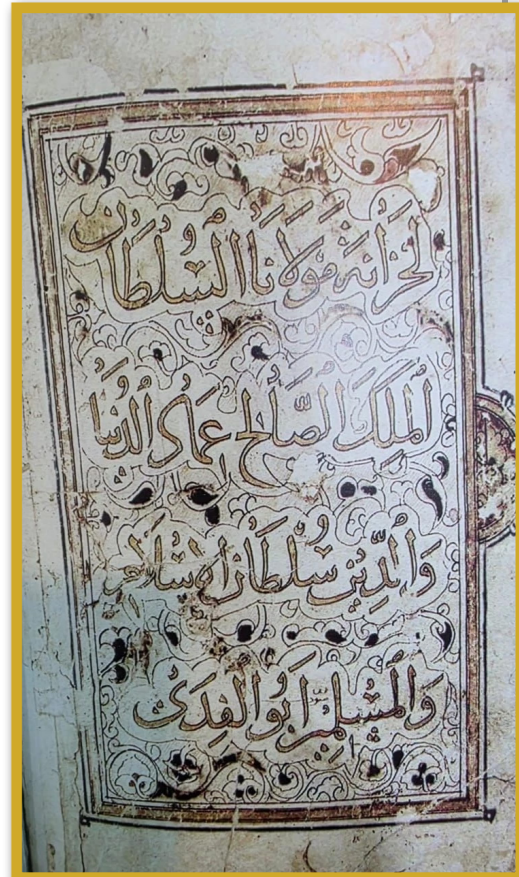 لخزانة مولانا السلطان
الملك الصالح عماد الدنيا
والدين سلطان الاسلام
والمسلمين ابو الفدى